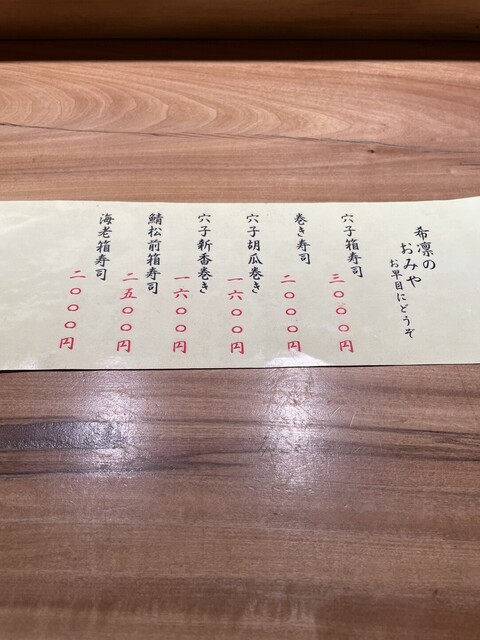 希凛の
おみや
お早目にどうぞ
穴子箱寿司
三〇〇〇円
巻き寿司
二〇〇〇円
穴子胡瓜巻き
一六〇〇円
穴子新香巻き
一六〇〇円
鯖松前箱寿司
二五〇〇円
海老箱寿司
二〇〇〇円